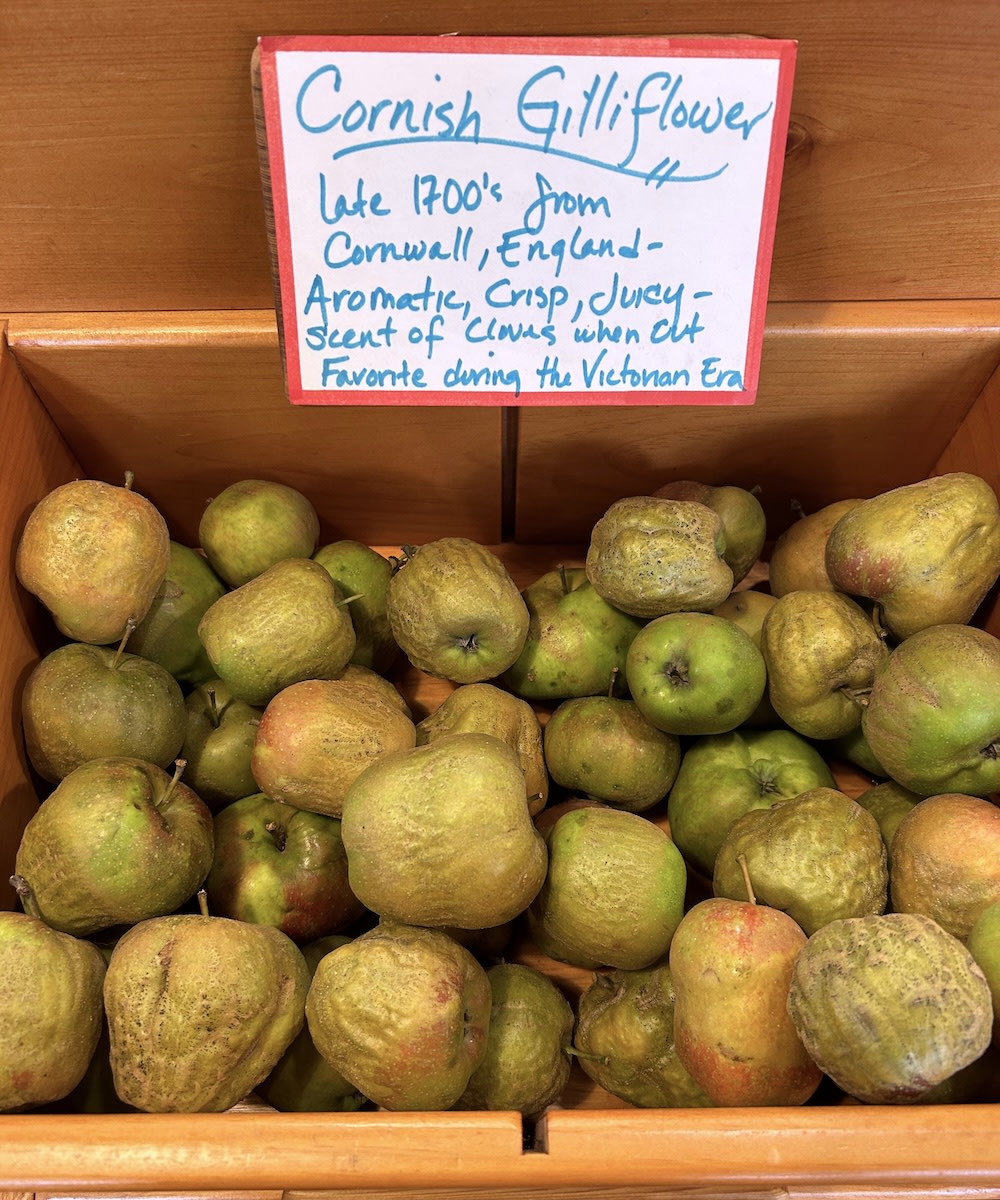 Cornish Gilliflower
late 1700's from
Cornwall, England-
Aromatic, Crisp, Juicy-
Scent of Cloves when cut
Favorite during the Victorian Era